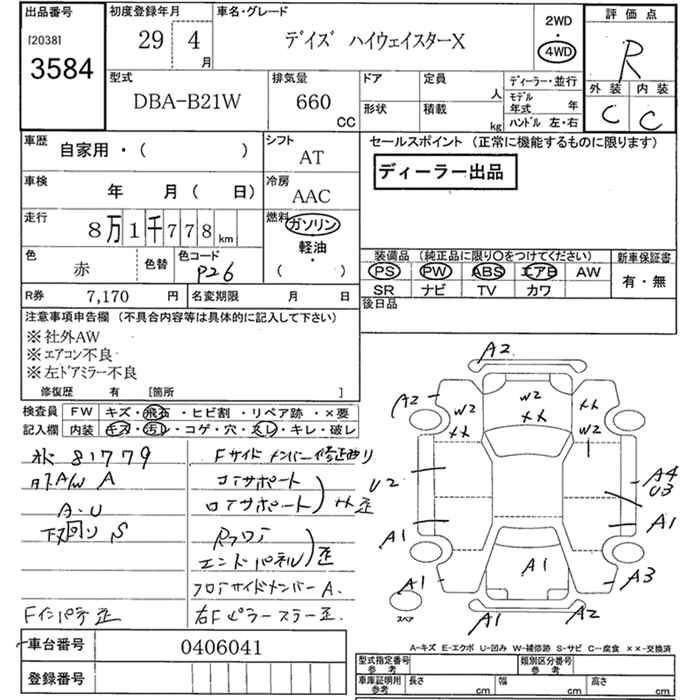 出品番号
[2038]
3584
初度登録年月
29 4 月
車名・グレード
デイズ ハイウェイスターX
2WD
・
4WD
評価点
R
外装 内装
C C
型式
DBA-B21W
排気量
660 CC
ドア
定員 人
形状
積載 kg
ディーラー・並行
モデル年式 年
ハンドル 左・右
車歴
自家用・( )
シフト
AT
セールスポイント (正常に機能するものに限ります)
ディーラー出品
車検
年 月( 日)
冷房
AAC
走行
8万1千778km
燃料
ガソリン
軽油
・
( )
色
赤
色替
色コード
P26
装備品 (純正品に限り〇をつけてください)
PS PW ABS エアB AW
SR ナビ TV カワ
新車保証書
有・無
R券 7,170 円
名変期限 月 日
後日品
注意事項申告欄 (不具合内容等は具体的に記入して下さい)
※社外AW
※エアコン不良
※左ドアミラー不良
修復歴 有 [箇所 ]
検査員記入欄
FW キズ・飛石・ヒビ割・リペア跡・×要
内装 キズ・汚レ・コゲ・穴・スレ・キレ・破レ
81779
A/W A
A.U
下回り S
Fインパネ歪
Fサイドメンバー修正有り
コアサポート
ロアサポート
Rフロア
エンドパネル 歪
フロアサイドメンバー A.
右Fピラー スラー歪.
A2
A2
W2
××
W2
××
××
W2
U2
A4
U3
A1
A1
A1
A1
A3
スペア
A1
A2
A-キズ E-エクボ U-凹み W-補修跡 S-サビ C-腐食 ××-交換済
車台番号 0406041
登録番号
型式指定番号 参考
類別区分番号 参考
車庫証明用 参考
長さ cm
幅 cm
高さ cm